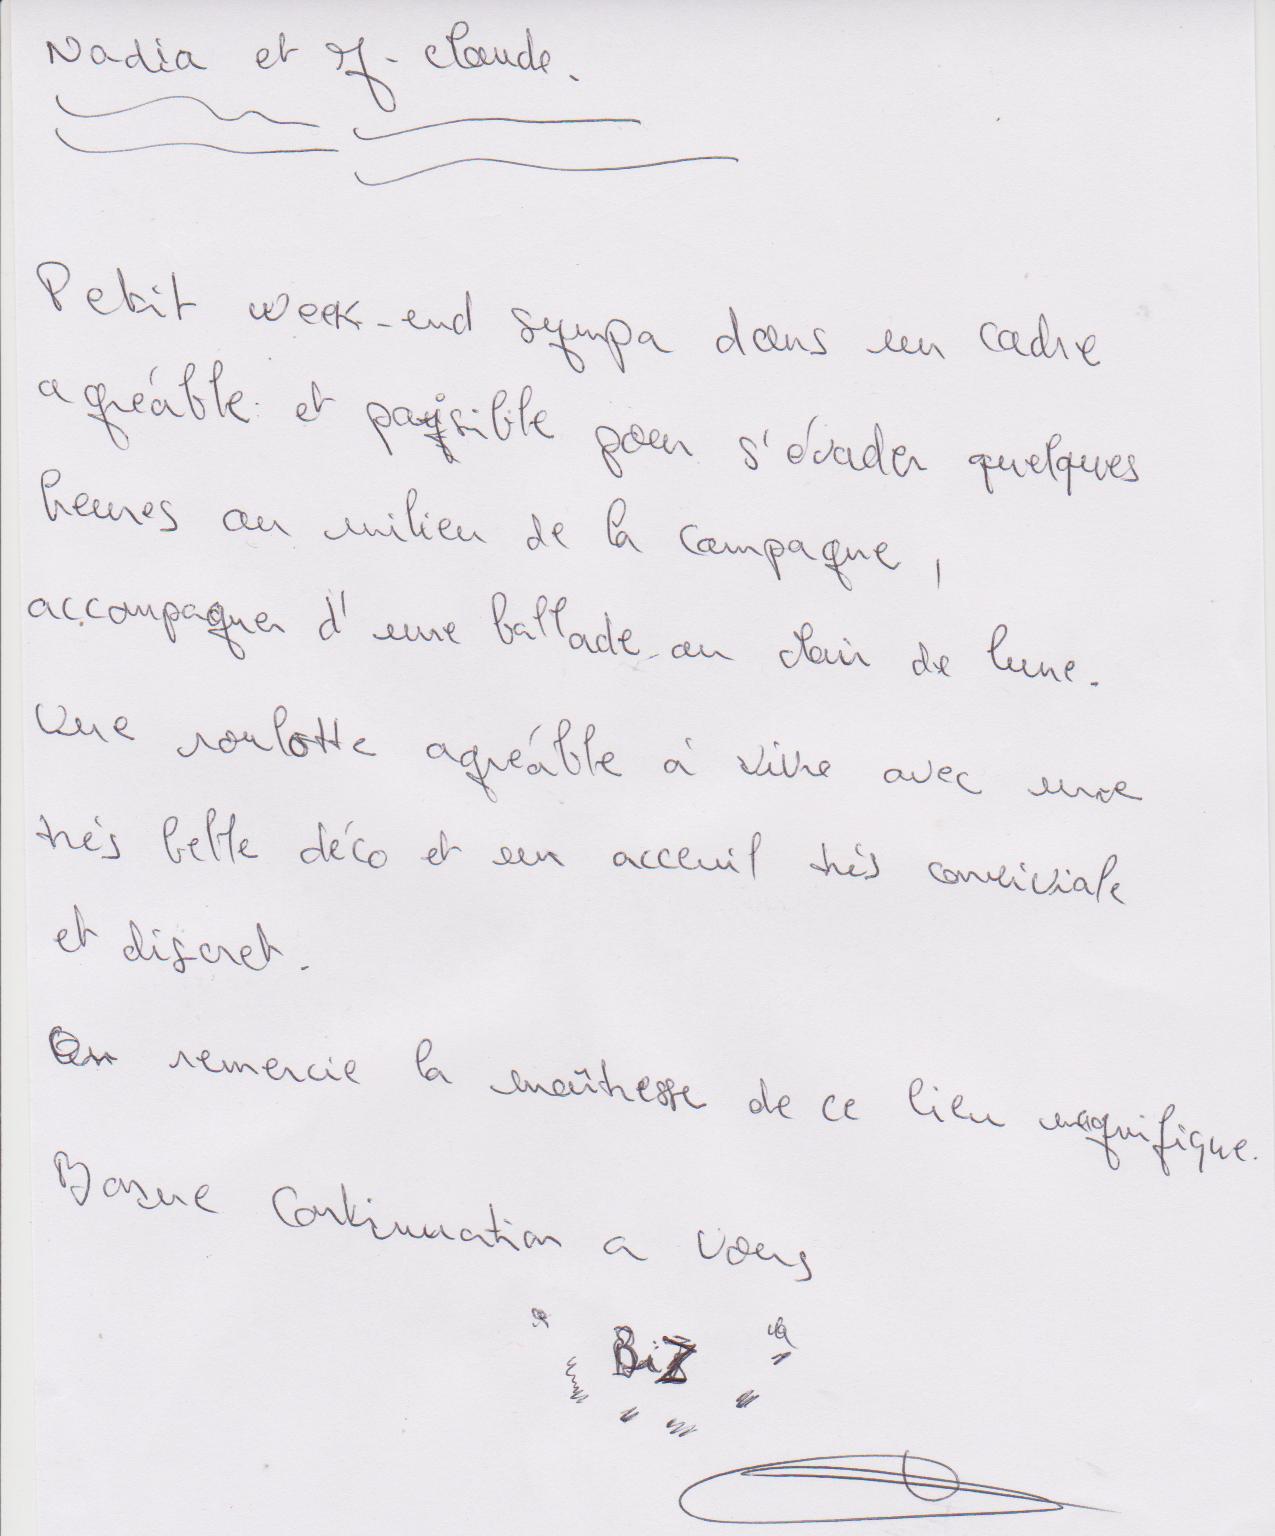 Nadia et J-Claude.
Petit week-end sympa dans un cadre
agréable et paysible pour s'évader quelques
heures au milieu de la campagne,
accompagner d'une ballade au clair de lune.
Une roulotte agréable à vivre avec une
très belle déco et un acceuil très conviviale
et discret.
On remercie la maîtresse de ce lieu magnifique.
Bonne Continuation a vous
BiZ